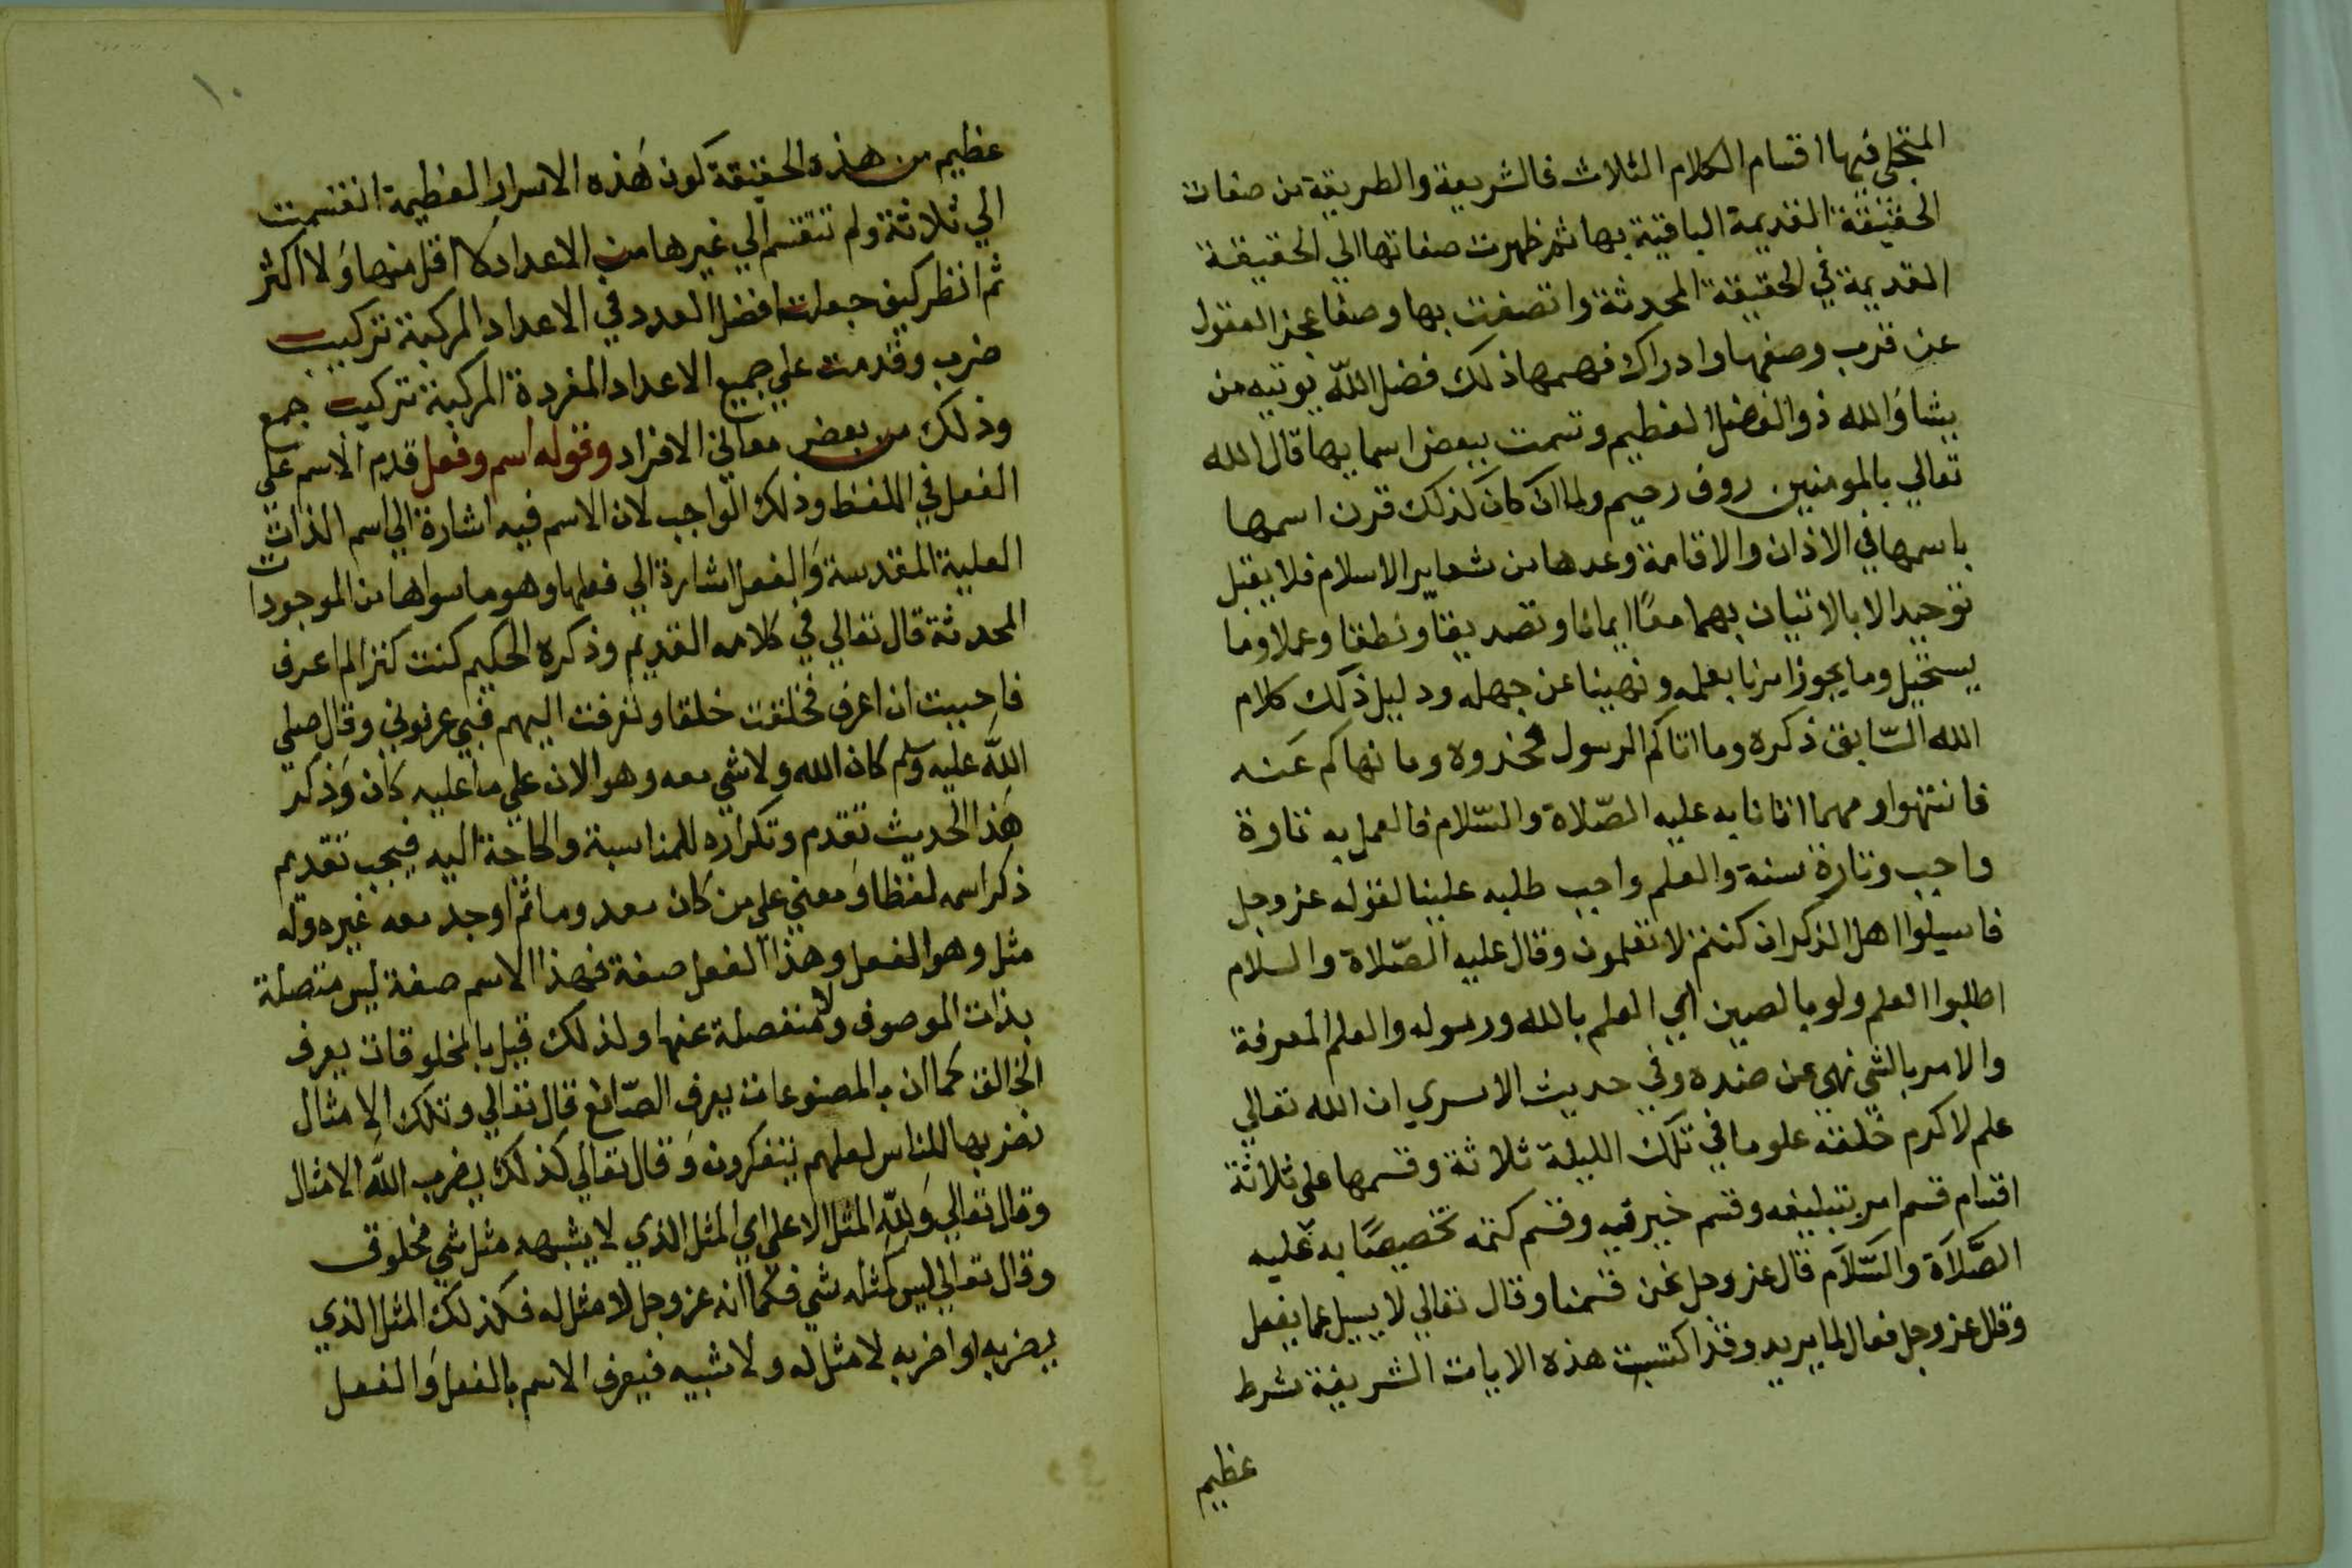 المتجلي فيها اقسام الكلام الثلاث فالشريعة والطريقة من صفات
الحقيقة القديمة الباقية بها ثم ظهرت صفاتها الي الحقيقة
القديمة في الحقيقة المحدثة واتصفت بها وصفا عجز العقول
عن قرب وصفها وادراك فهمها ذلك فضل الله يوتيه من
يشا والله ذو الفضل العظيم وتسمت ببعض اسمايها قال الله
تعالي بالمومنين روف رحيم ولما ان كان كذلك قرن اسمها
باسمها في الاذان والاقامة وعدها من شعاير الاسلام فلا يقبل
توحيد الا بالاتيان بهما معًا ايمانا وتصديقا ونطقا وعملا وما
يستحيل وما يجوز امرنا بعلمه ونهينا عن جهله ودليل ذلك كلام
الله السّابق ذكره وما اتاكم الرسول فخذوه وما نهاكم عنه
فانتهوا ومهما اتانا به عليه الصّلاة والسّلام فالعمل به تارة
واجب وتارة سنة والعلم واجب طلبه علينا لقوله عز وجل
فاسيلوا اهل الذكر ان كنتم لا تعلمون وقال عليه الصّلاة والسلام
اطلبوا العلم ولو بالصين اي العلم بالله ورسوله والعلم المعرفة
والامر بالشي نهي عن ضده وفي حديث الاسري ان الله تعالي
علم لاكرم خلقه علوما في تلك الليلة ثلاثة وقسمها على ثلاثة
اقسام قسم امر بتبليغه وقسم خير فيه وقسم كتمه تخصيصًا به عليه
الصَّلاَة والسَّلاَم قال عز وجل نحن قسمنا وقال تعالي لا يسيل عما يفعل
وقال عز وجل فعال لما يريد وقد اكتسبت هذه الايات الشريفة شرط
عظيم
١٠
عظيم من هذه الحقيقة كون هَذه الاسرار العظيمة انقسمت
الي ثلاثة ولم تنقسم الي غيرها من الاعداد لا اقل منها ولا اكثر
ثم انظر كيف جعلت افضل العدد في الاعداد المركبة تركيب
ضرب وقدمت علي جميع الاعداد المفردة المركبة تركيب جمع
وذلك من بعض معاني الافراد وقوله اسم وفعل قدم الاسم علي
الفعل في اللفظ وذلك الواجب لان الاسم فيه اشارة الي اسم الذات
العلية المقدسة وَالفعل اشارة الي فعلها وهو ما سواها من الموجودات
المحدثة قال تعالي في كلامه القديم وذكره الحكيم كنت كنزا لم اعرف
فاحببت ان اعرف فخلقت خلقا وتعرفت اليهم فبي عرفوني وقال صلي
اللَّه عليه وسلم كان الله ولا شي معه وهو الان علي ما عليه كان وَذكر
هَذا الحديث تقدم وتكراره للمناسبة والحاجة اليه فيجب تقديم
ذكر اسمه لفظا وَمعني علي من كان معدوما ثم اوجد معه غيره وله
مثل وهو الفعل وهذا الفعل صفة فهذا الاسم صفة ليس متصلة
بذات الموصوف ولا منفصلة عنها ولذلك قيل بالمخلوقات يعرف
الخالق كما ان بالمصنوعات يعرف الصّانع قال تعالي وتلك الامثال
نضربها للناس لعلهم يتفكرون وَقال تعالي كذلك يضرب اللَّه الامثال
وقال تعالي وَللّه المثل الاعلي اي المثل الذي لا يشبهه مثل شي مخلوق
وقال تعالي ليس كمثله شي فكما انه عز وجل لا مثل له فكذلك المثل الذي
يضربه او اضربه لا مثل له ولا شبيه فيعرف الاسم بالفعل وَالفعل